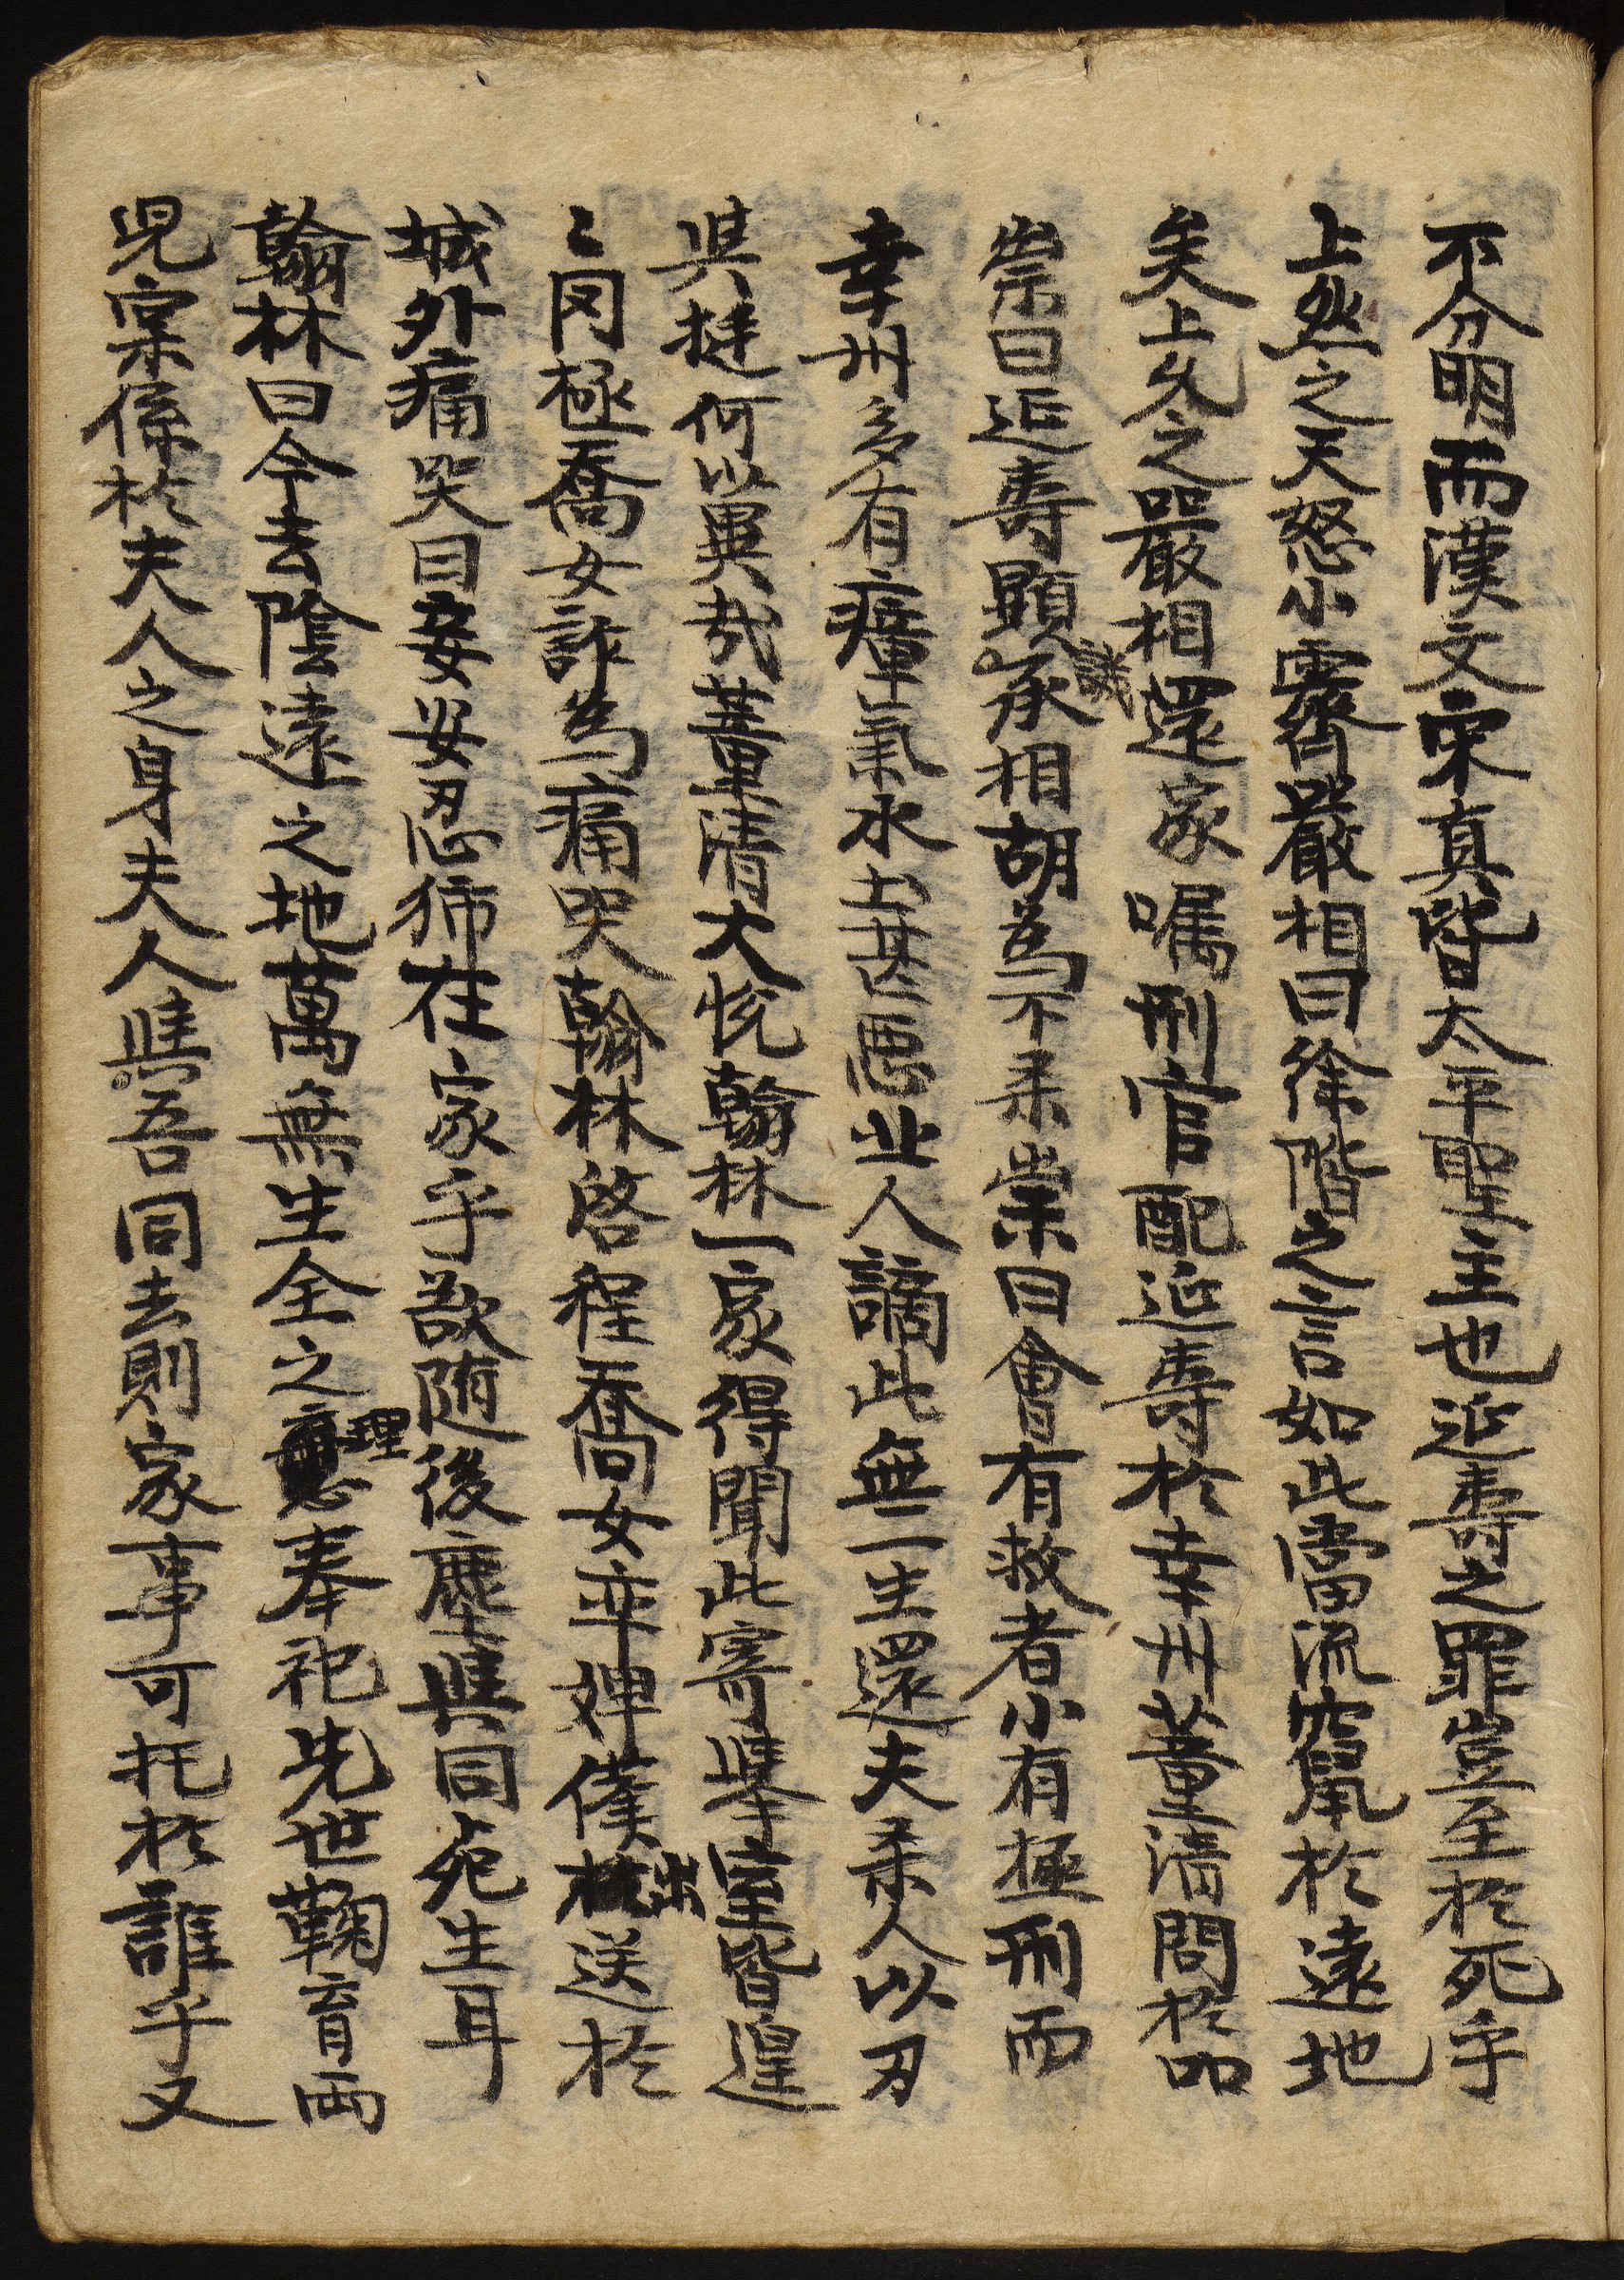 不分明而漢文宋眞皆太平聖主也延壽之罪豈至於死乎
上然之天怒小霽嚴相曰徐階之言如此當流竄於遠地
矣上允之嚴相還家嘱刑官配延壽於幸州董清問於
崇曰延壽顕承相胡爲不杀崇曰會有救者小有極刑而
議
幸州多有瘴氣水土甚悪北人謫此無一生還夫杀人以刃
與挺何以異哉董清大悦翰林一家得聞此寄擧室皆遑
〻罔極喬女詐爲痛哭翰林啓程喬女率婢僕出送於
城外痛哭曰妾安忍獨在家乎欲随後塵與同死生耳
翰林曰今去陰遠之地萬無生全之理奉祀先世鞠育両
児寔係於夫人之身夫人與吾同去則家事可托於誰乎又